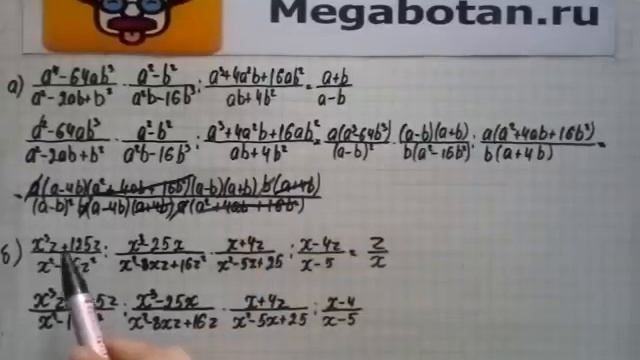 Megabotan.ru
а) a⁴-64ab³/a²-2ab+b² · a²-b²/a²b-16b³ : a³+4a²b+16ab²/ab+4b² = a+b/a-b
a⁴-64ab³/a²-2ab+b² · a²-b²/a²b-16b³ : a³+4a²b+16ab²/ab+4b² = a(a³-64b³)/(a-b)² · (a-b)(a+b)/b(a²-16b²) : a(a²+4ab+16b²)/b(a+4b) =
= a(a-4b)(a²+4ab+16b²)(a-b)(a+b) b(a+4b)/(a-b)² b(a-4b)(a+4b) a(a²+4ab+16b²)
б) : x³-25x/x²-8xz+16z² · x+4z/x²-5x+25 : x-4z/x-5 = z/x
: x³-25x/x²-8xz+16z · x+4z/x²-5x+25 : x-4/x-5